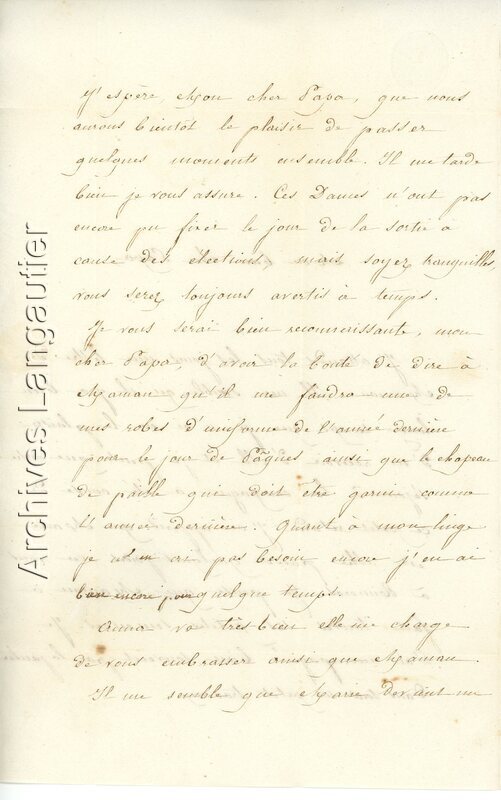 J'espère, Mon cher Papa, que nous
aurons bientôt le plaisir de passer
quelques moments ensemble. Il me tarde
bien je vous assure. Ces Dames n'ont pas
encore pu fixer le jour de la sortie à
cause des élections mais soyez tranquilles
vous serez toujours avertis à temps.
Je vous serai bien reconnaissante, mon
cher Papa, d'avoir la bonté de dire à
Maman qu'il me faudra une de
mes robes d'uniforme de l'année dernière
pour le jour de Pâques ainsi que le chapeau
de paille qui doit être garni comme
l'année dernière. Quant à mon linge
je n'en ai pas besoin encore j'en ai
bien encore pour quelque temps.
Anna va très bien elle me charge
de vous embrasser ainsi que Maman.
Il me semble que Marie devant me
Archives Langautier